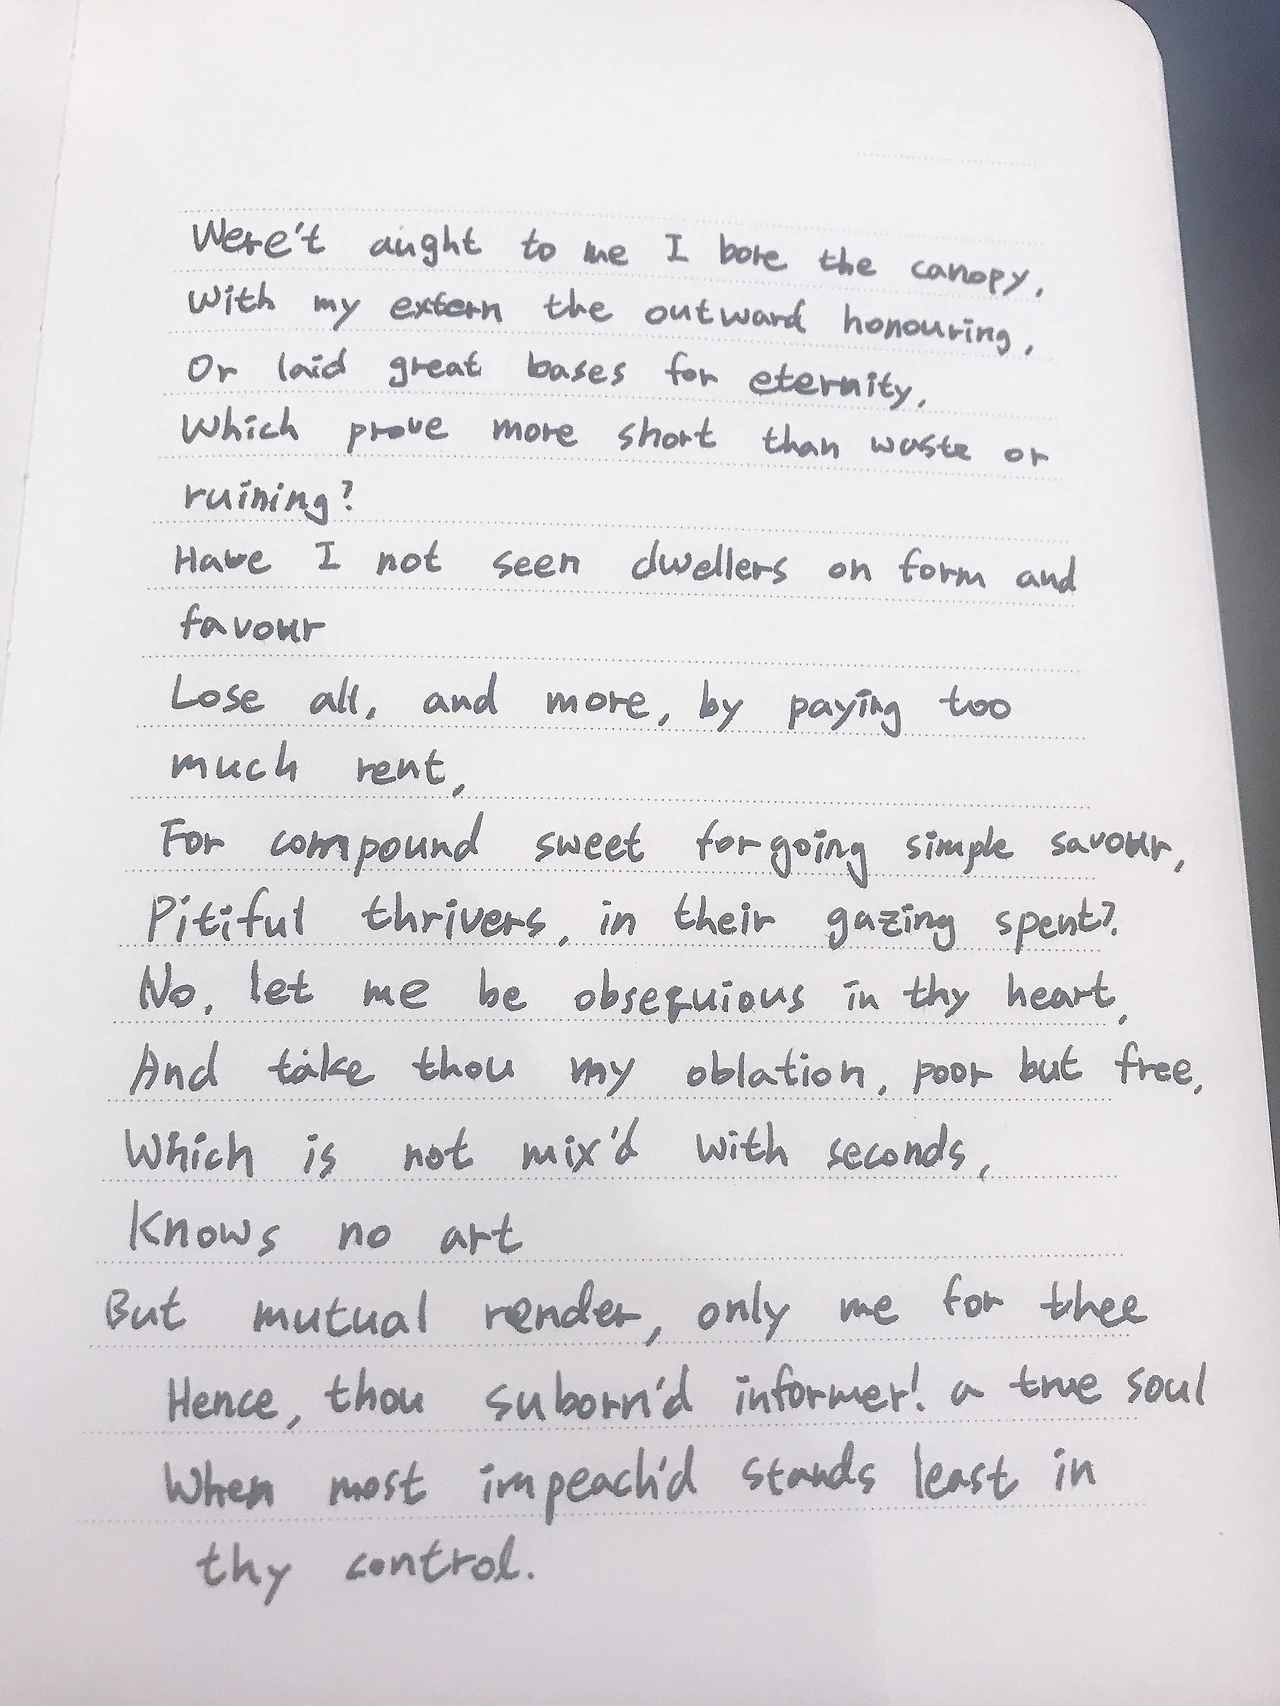 Were't aught to me I bore the canopy,
With my extern the outward honouring,
Or laid great bases for eternity,
Which prove more short than waste or
ruining?
Have I not seen dwellers on form and
favour
Lose all, and more, by paying too
much rent,
For compound sweet forgoing simple savour,
Pitiful thrivers, in their gazing spent?
No, let me be obsequious in thy heart,
And take thou my oblation, poor but free,
Which is not mix'd with seconds,
Knows no art
But mutual render, only me for thee
Hence, thou suborn'd informer! a true soul
When most impeach'd stands least in
thy control.